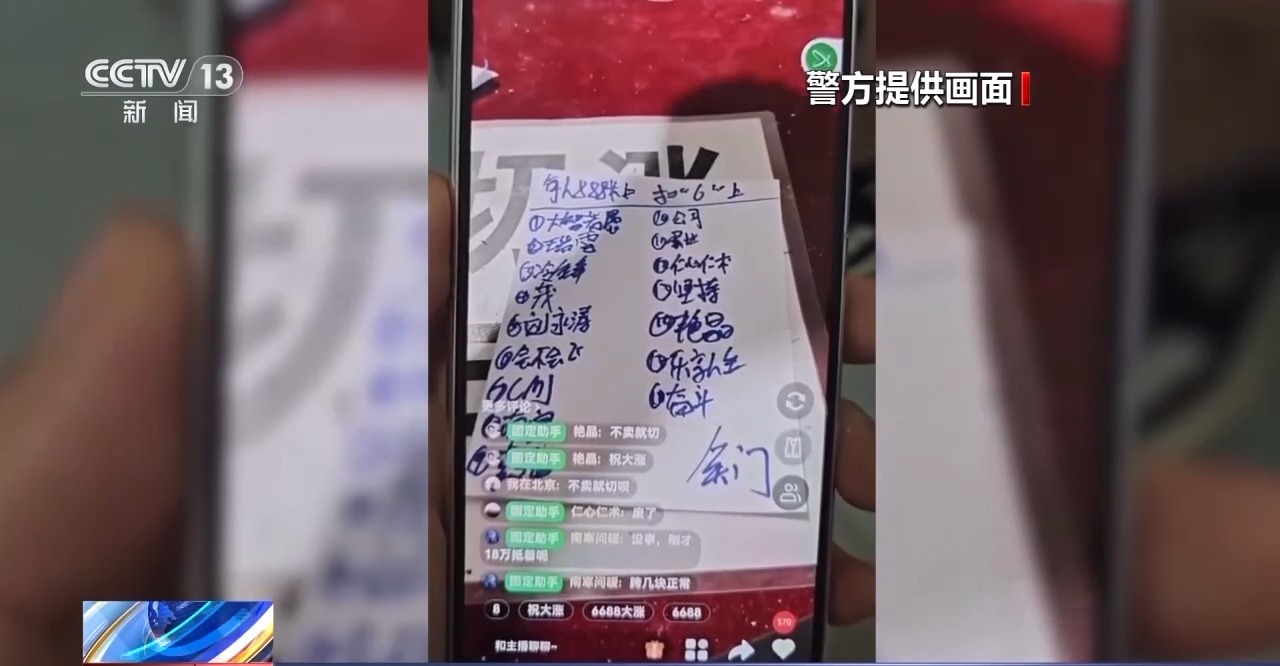 CCTV 13
新闻
警方提供画面
切 涨
每人888米上 扣“6”上
①大智若愚
③冷锋
④茂
⑤刘永涛
⑥会不会飞
仁心仁术
坚持
艳晶
乐享人生
奋斗
关门
更多评论
固定助手 艳晶：不卖就切
固定助手 艳晶：祝大涨
我在北京：不卖就切呗
固定助手 仁心仁术：废了
固定助手 南寒问暖：没事，刚才
18万抵着呢
固定助手 南寒问暖：跨几块正常
8 祝大涨 6688大涨 6688
和主播聊聊~
570